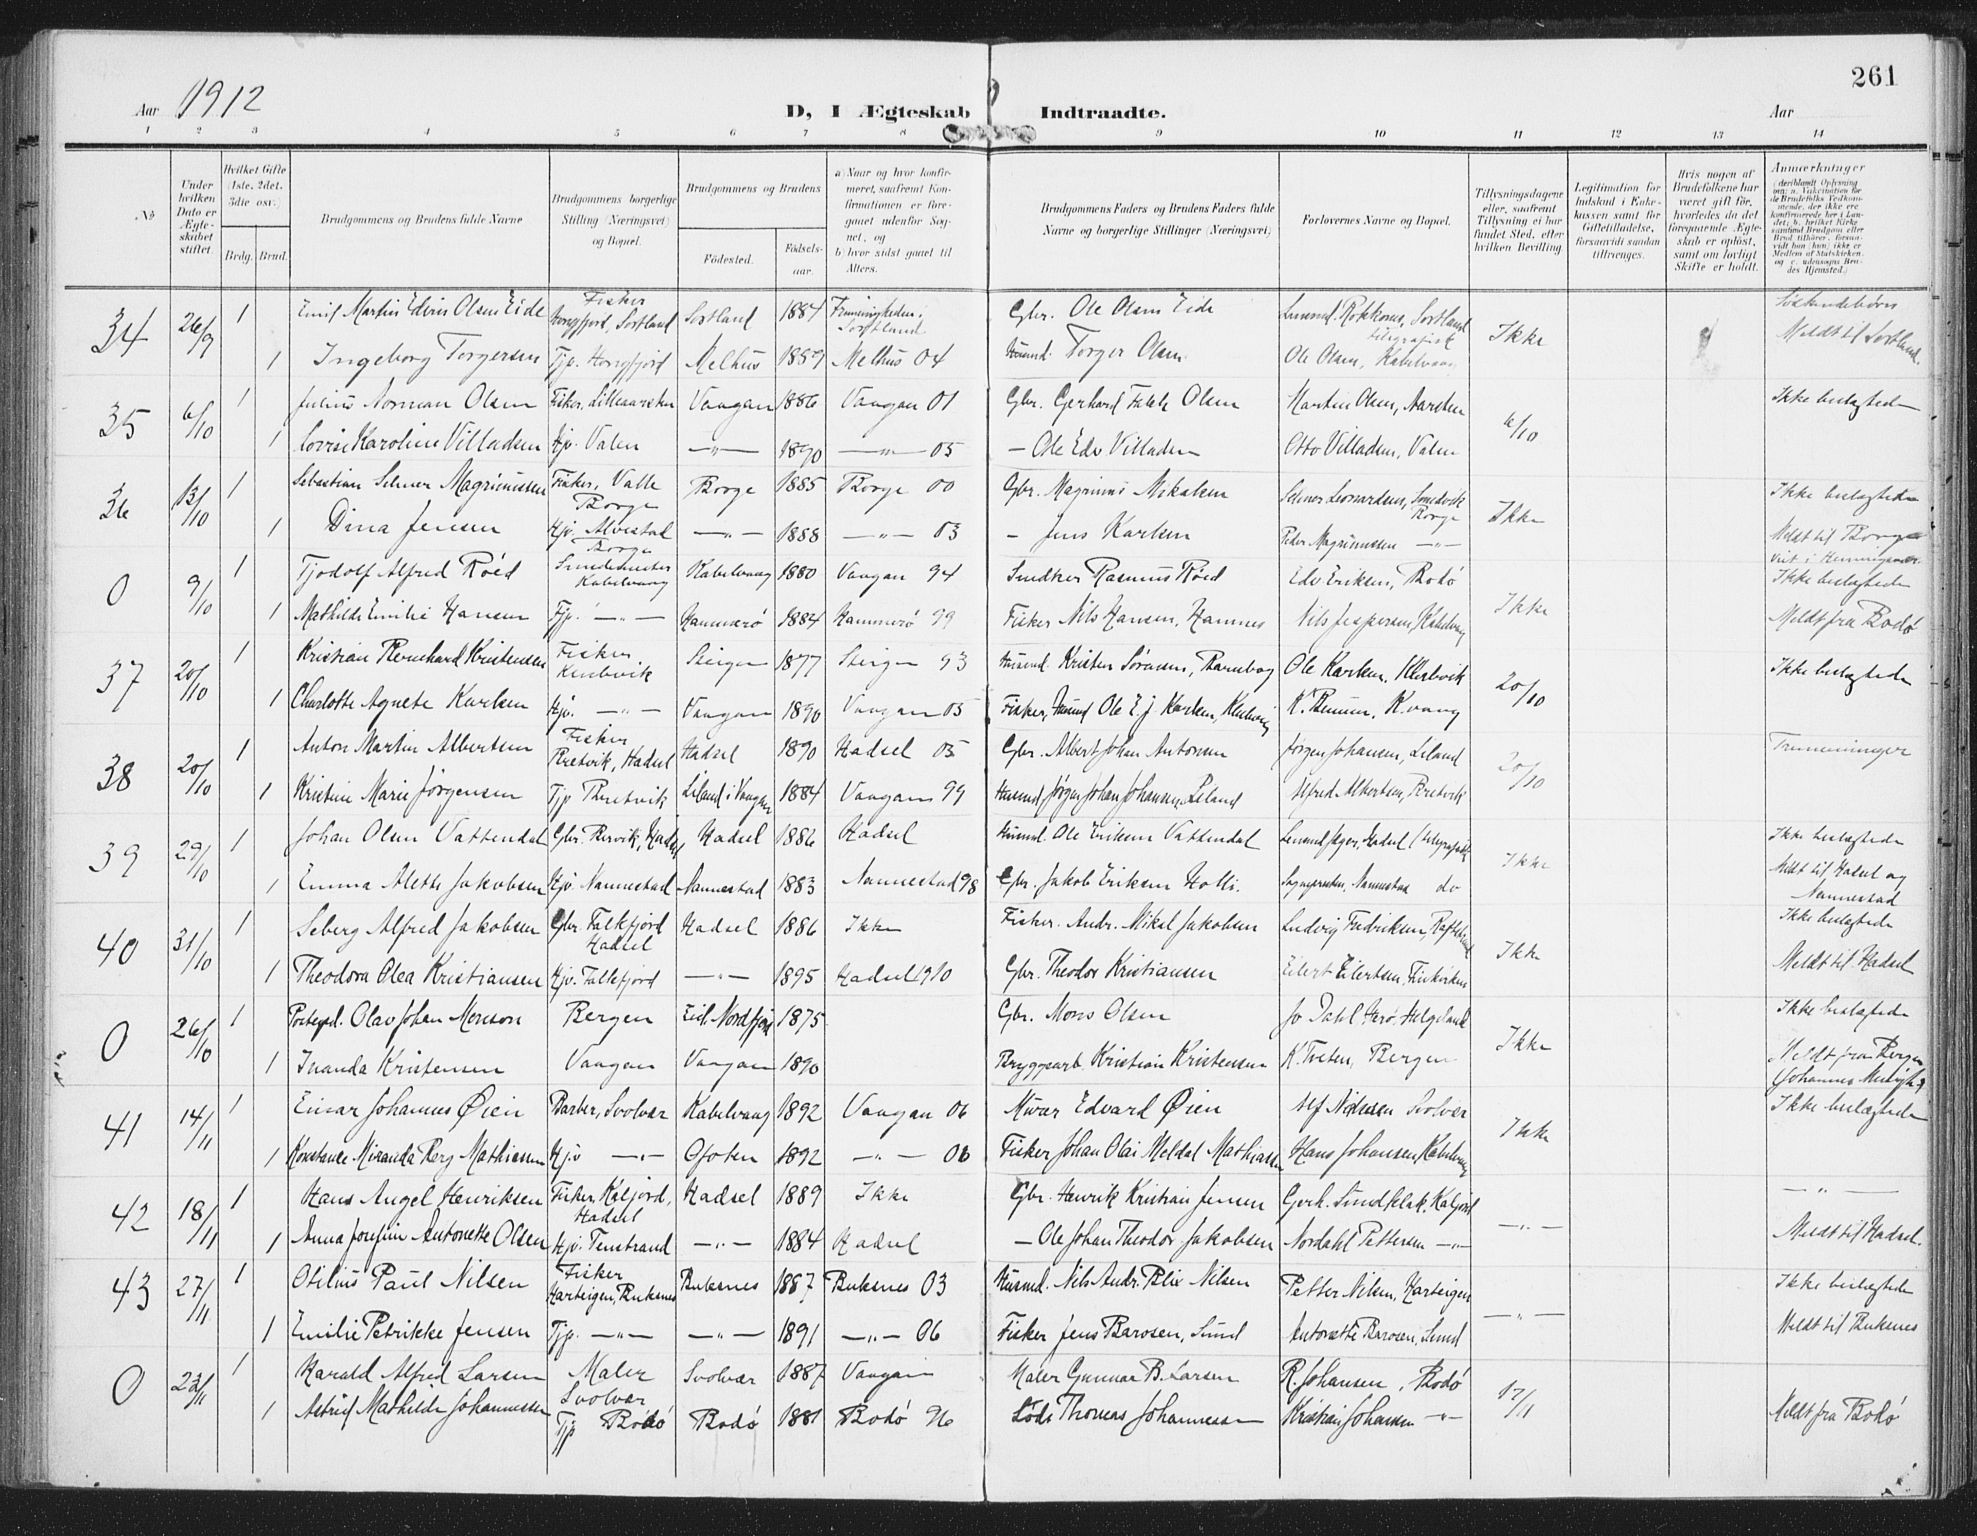 261
Aar 1912
D, I Ægteskab Indtraadte.
Aar
1 2 3 4 5 6 7 8 9 10 11 12 13 14
No
Under hvilken Dato er Ægteskabet stiftet.
Hvilket Gifte (1ste, 2det, 3die osv.)
Brdg. Brud.
Brudgommens og Brudens fulde Navne
Brudgommens borgerlige Stilling (Næringsvei) og Bopæl.
Brudgommens og Brudens
Fødested. Fødselsaar.
a) Naar og hvor konfirmeret, saafremt Konfirmationen er foregaaet udenfor Sognet, og
b) hvor sidst gaaet til Alters.
Brudgommens Faders og Brudens Faders fulde Navne og borgerlige Stillinger (Næringsvei)
Forlovernes Navne og Bopæl.
Tillysningsdagene eller, saafremt Tillysning ei har fundet Sted, efter hvilken Bevilling.
Legitimation for Indskud i Enkekassen samt for Giftetilladelse, forsaavidt saadan tiltrænges.
Hvis nogen af Brudefolkene har været gift før, hvorledes da det foregaaende Ægteskab er opløst, samt om lovligt Skifte er holdt.
Anmærkninger
34 26/9 1 Emil Martin Edvin Olsen Eide Fisker Hongfjord, Sortland Sortland 1884 Sortland Gbr. Ole Olsen Eide Lensmd. Sortland telegrafisk Ikke Søskendebørn
1 Ingeborg Torgersen Tjp. Hongfjord Melhus 1889 Melhus 04 Husmd. Torger Olsen Ole Olsen, Kabelvaag Meldt til Sortland.
35 6/10 1 Julius Norman Olsen Fisker, Vaagan 1886 Vaagan 01 Gbr. Gerhard Falck Olsen Martin Olsen, 6/10 Ikke beslægtede
1 Lovise Karoline Villadsen Hjv. Valen —„— 1890 —„— 05 — Ole Edv Villadsen Otto Villadsen, Valen
36 13/10 1 Sebastian Selmer Magnussen Fisker, Valle Borge Borge 1885 Borge 00 Gbr. Magnus Mikalsen Selmer Leonardsen, Borge Ikke Ikke beslægtede
1 Dina Jensen Hjv. Alvestad Borge —„— 1888 —„— 03 — Jens Karlsen Peder Magnussen —„— Meldt til Borge
Viet i Henningsvær
0 9/10 1 Tjodolf Alfred Røed Kabelvaag Kabelvaag 1880 Vaagan 94 Snedker Rasmus Røed Edv Eriksen, Bodø Ikke Ikke beslægtede
1 Mathilde Emilie Hansen Tjp. —„— Hammerø 1884 Hammerø 99 Fisker Nils Hansen, Hamnes Nils Jespersen, Kabelvaag Meldt fra Bodø
37 20/10 1 Kristian Bernhard Kristensen Fisker Steigen 1877 Steigen 93 Husmd. Kristen Sørensen, Ole Karlsen, 20/10 Ikke beslægtede
1 Charlotte Agnete Karlsen Hjv. —„— Vaagan 1890 Vaagan 05 Fisker, Husmd Ole E. J. Karlsen, K. vaag
38 20/10 1 Anton Martin Albertsen Fisker Hadsel Hadsel 1890 Hadsel 05 Gbr. Albert Johan Antonsen Jørgen Johansen, Liland 20/10 Tremenninger
1 Kristine Marie Jørgensen Tjp Liland i Vaagan 1884 Vaagan 99 Husmd Jørgen Johan Johansen, Liland Alfred Albertsen,
39 29/10 1 Johan Olsen Vattendal Gbr. Hadsel Hadsel 1886 Hadsel Husmd. Ole Eriksen Vattendal Lensmd Hadsel (telegrafisk Ikke Ikke beslægtede
1 Emma Alette Jakobsen Hjv. Nannestad Nannestad 1883 Nannestad 98 Gbr. Jakob Eriksen Holli. Sognepresten, Nannestad do Meldt til Hadsel og Nannestad
40 31/10 1 Seberg Alfred Jakobsen Gbr. Falkfjord Hadsel Hadsel 1886 Ikke Fisker. Andr. Mikal Jakobsen Ludvig Fredriksen, Ikke Ikke beslægtede
1 Theodora Olea Kristiansen Hjv. Falkfjord —„— 1895 Hadsel 1910 Gbr. Theodor Kristiansen Eilert Eilertsen, Meldt til Hadsel
0 26/10 1 Postexp. Olav Johan Monson Bergen Eid. Nordfjord 1875 Gbr. Mons Olsen Jo Dahl, Herø, Helgeland Ikke Ikke beslægtede
1 Inanda Kristensen Vaagan Vaagan 1890 Bryggearb. Kristian Kristensen K. Tveten, Bergen Meldt fra Bergen
41 14/11 1 Einar Johannes Øien Barber, Svolvær Kabelvaag 1892 Vaagan 06 Murer Edvard Øien Alf Svolvær Ikke Ikke beslægtede
1 Konstance Miranda Berg Mathiassen Hjv —„— Ofoten 1892 —„— 06 Fisker Johan Olai Meldal Mathiassen Hans Johansen, Kabelvaag
42 18/11 1 Hans Angel Henriksen Fisker, Kaljord, Hadsel Hadsel 1889 Ikke Gbr. Henrik Kristian Jensen Gerh. Sundklak, Kaljord —„— —„—
1 Anna Josefine Antonette Olsen Hjv. Tenstrand —„— 1884 Hadsel — Ole Johan Theodor Jakobsen Nordahl Pettersen —„— Meldt til Hadsel.
43 27/11 1 Otelius Paul Nilsen Fisker Harteigen, Buksnes Buksnes 1887 Buksnes 03 Husmd. Nils Andr. Blix Nilsen Petter Nilsen, Harteigen —„— Ikke beslægtede
1 Emilie Petrikke Jensen Tjp. —„— —„— 1891 —„— 06 Fisker Jens Barosen, Sund Antonette Barosen, Sund Meldt til Buksnes
0 23/11 1 Harald Alfred Larsen Maler Svolvær Svolvær 1887 Vaagan Maler Gunnar B. Larsen R. Johansen, Bodø 17/11
1 Astrid Mathilde Johannessen Tjp Bodø Bodø 1881 Bodø 96 Lods Thomas Johannessen Kristian Johansen —„— Meldt fra Bodø